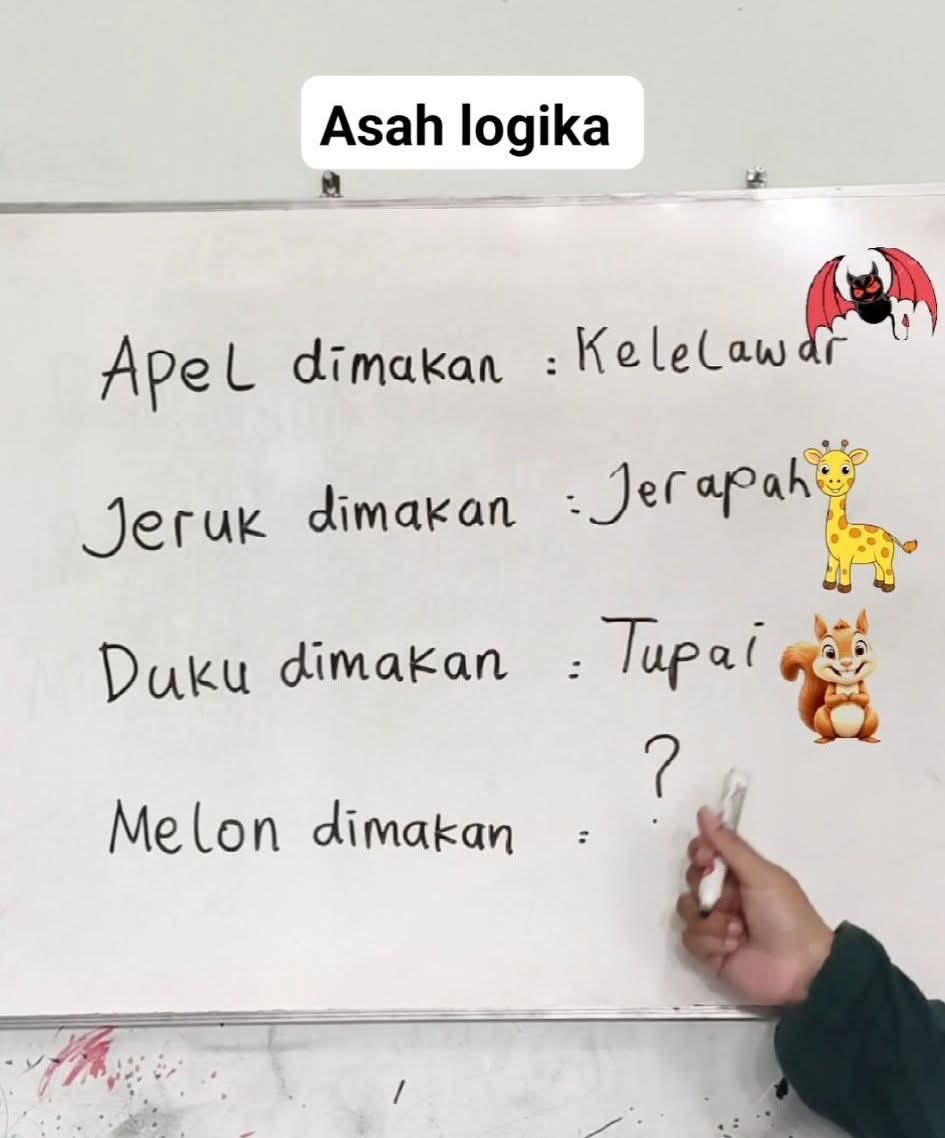 Asah logika
Apel dimakan : Kelelawar
Jeruk dimakan : Jerapah
Duku dimakan : Tupai
?
Melon dimakan :